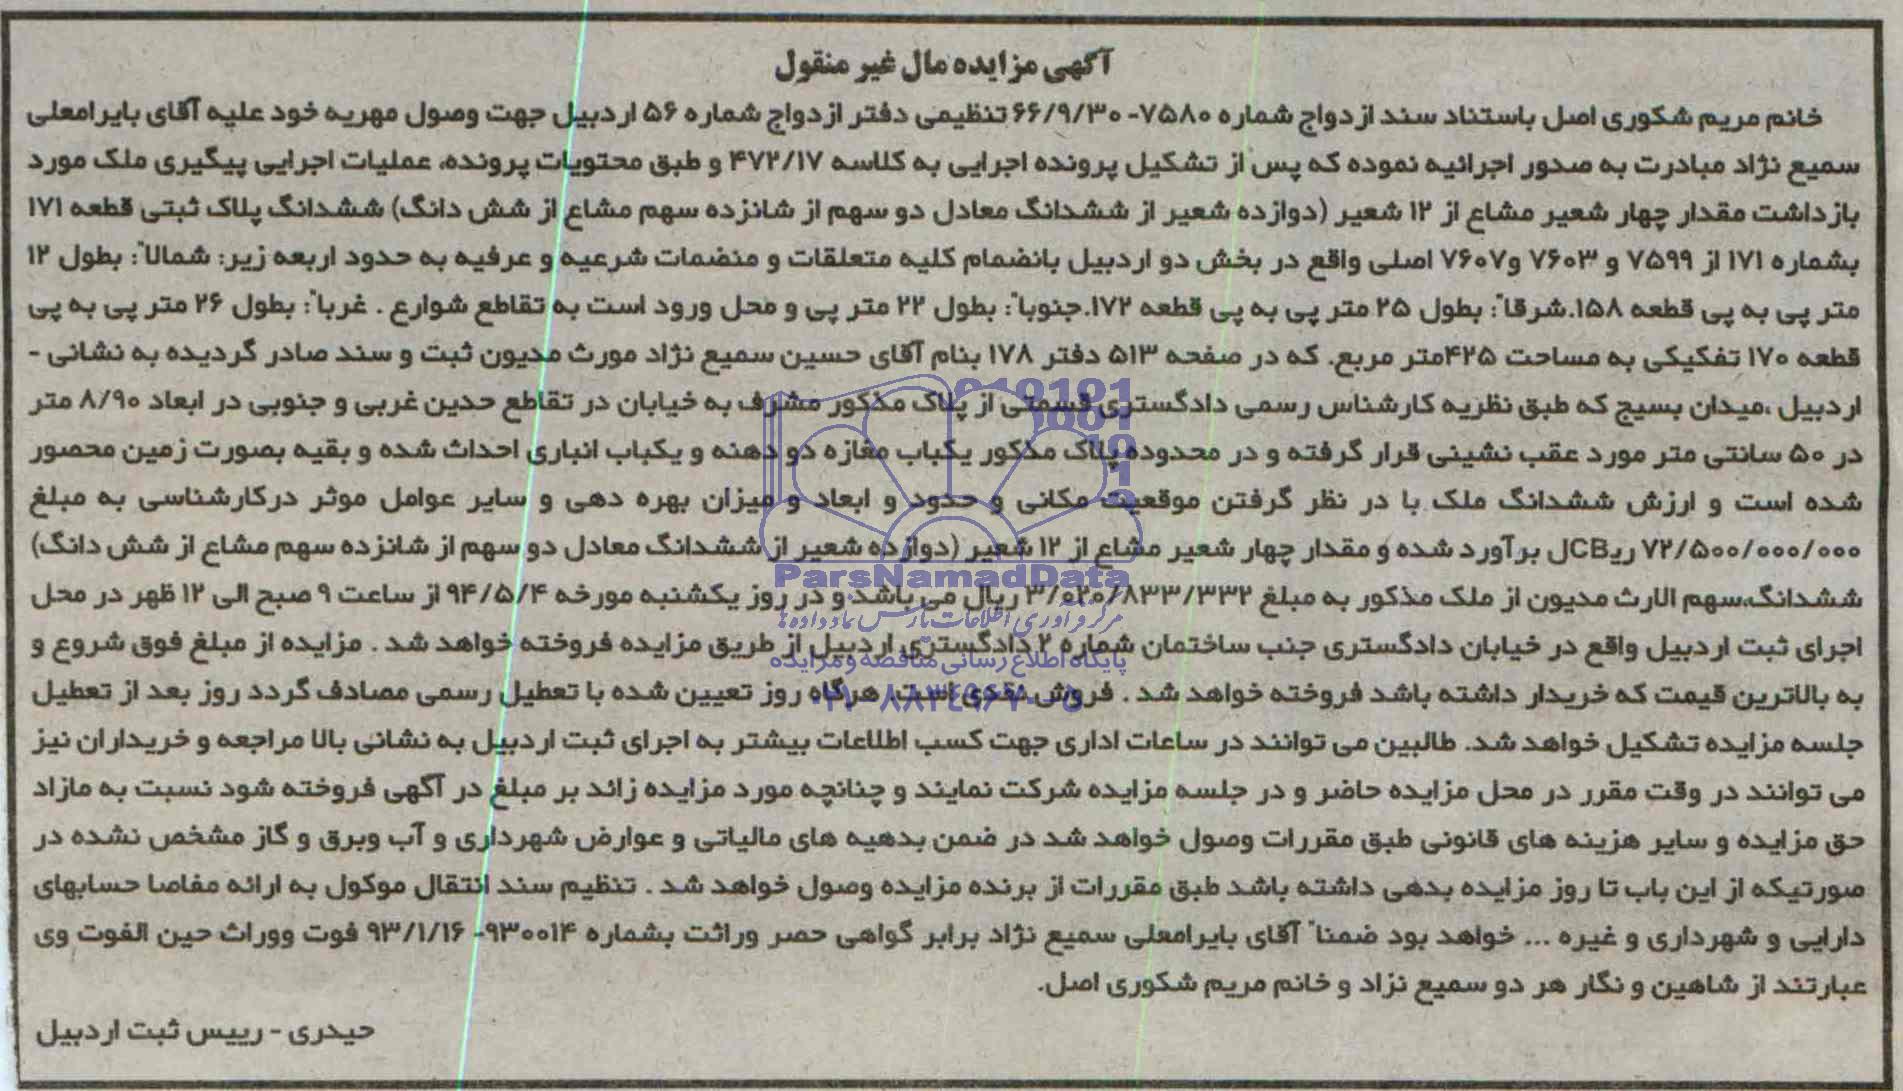 آگهی مزایده مال غیر منقول
خانم مریم شکوری اصل باستناد سند ازدواج شماره ۷۵۸۰- ۶۶/۹/۳۰ تنظیمی دفتر ازدواج شماره ۵۶ اردبیل جهت وصول مهریه خود علیه آقای بایرامعلی
سمیع نژاد مبادرت به صدور اجرائیه نموده که پس از تشکیل پرونده اجرایی به کلاسه ۴۷۲/۱۷ و طبق محتویات پرونده، عملیات اجرایی پیگیری ملک مورد
بازداشت مقدار چهار شعیر مشاع از ۱۲ شعیر (دوازده شعیر از ششدانگ معادل دو سهم از شانزده سهم مشاع از شش دانگ) ششدانگ پلاک ثبتی قطعه ۱۷۱
بشماره ۱۷۱ از ۷۵۹۹ و ۷۶۰۳ و۷۶۰۷ اصلی واقع در بخش دو اردبیل بانضمام کلیه متعلقات و منضمات شرعیه و عرفیه به حدود اربعه زیر: شمالاً: بطول ۱۲
متر پی به پی قطعه ۱۵۸.شرقاً: بطول ۲۵ متر پی به پی قطعه ۱۷۲.جنوباً: بطول ۲۲ متر پی و محل ورود است به تقاطع شوارع . غرباً: بطول ۲۶ متر پی به پی
قطعه ۱۷۰ تفکیکی به مساحت ۴۲۵متر مربع. که در صفحه ۵۱۳ دفتر ۱۷۸ بنام آقای حسین سمیع نژاد مورث مدیون ثبت و سند صادر گردیده به نشانی -
اردبیل ،میدان بسیج که طبق نظریه کارشناس رسمی دادگستری قسمتی از پلاک مذکور مشرف به خیابان در تقاطع حدین غربی و جنوبی در ابعاد ۸/۹۰ متر
در ۵۰ سانتی متر مورد عقب نشینی قرار گرفته و در محدوده پلاک مذکور یکباب مغازه دو دهنه و یکباب انباری احداث شده و بقیه بصورت زمین محصور
شده است و ارزش ششدانگ ملک با در نظر گرفتن موقعیت مکانی و حدود و ابعاد و میزان بهره دهی و سایر عوامل موثر درکارشناسی به مبلغ
۷۲/۵۰۰/۰۰۰/۰۰۰ ریCBل برآورد شده و مقدار چهار شعیر مشاع از ۱۲ شعیر (دوازده شعیر از ششدانگ معادل دو سهم از شانزده سهم مشاع از شش دانگ)
ششدانگ،سهم الارث مدیون از ملک مذکور به مبلغ ۳/۰۲۰/۸۳۳/۳۳۲ ریال می باشد و در روز یکشنبه مورخه ۹۴/۵/۴ از ساعت ۹ صبح الی ۱۲ ظهر در محل
اجرای ثبت اردبیل واقع در خیابان دادگستری جنب ساختمان شماره ۲ دادگستری اردبیل از طریق مزایده فروخته خواهد شد . مزایده از مبلغ فوق شروع و
به بالاترین قیمت که خریدار داشته باشد فروخته خواهد شد . فروش نقدی است. هرگاه روز تعیین شده با تعطیل رسمی مصادف گردد روز بعد از تعطیل
جلسه مزایده تشکیل خواهد شد. طالبین می توانند در ساعات اداری جهت کسب اطلاعات بیشتر به اجرای ثبت اردبیل به نشانی بالا مراجعه و خریداران نیز
می توانند در وقت مقرر در محل مزایده حاضر و در جلسه مزایده شرکت نمایند و چنانچه مورد مزایده زائد بر مبلغ در آگهی فروخته شود نسبت به مازاد
حق مزایده و سایر هزینه های قانونی طبق مقررات وصول خواهد شد در ضمن بدهیه های مالیاتی و عوارض شهرداری و آب وبرق و گاز مشخص نشده در
صورتیکه از این باب تا روز مزایده بدهی داشته باشد طبق مقررات از برنده مزایده وصول خواهد شد . تنظیم سند انتقال موکول به ارائه مفاصا حسابهای
دارایی و شهرداری و غیره ... خواهد بود ضمناً آقای بایرامعلی سمیع نژاد برابر گواهی حصر وراثت بشماره ۹۳۰۰۱۴- ۹۳/۱/۱۶ فوت ووراث حین الفوت وی
عبارتند از شاهین و نگار هر دو سمیع نزاد و خانم مریم شکوری اصل.
حیدری - رییس ثبت اردبیل
ParsNamadData
مرکز فرآوری اطلاعات پارس نماد داده ها
پایگاه اطلاع رسانی مناقصه و مزایده
۰۲۱-۸۸۳۴۹۶۷۰-۵